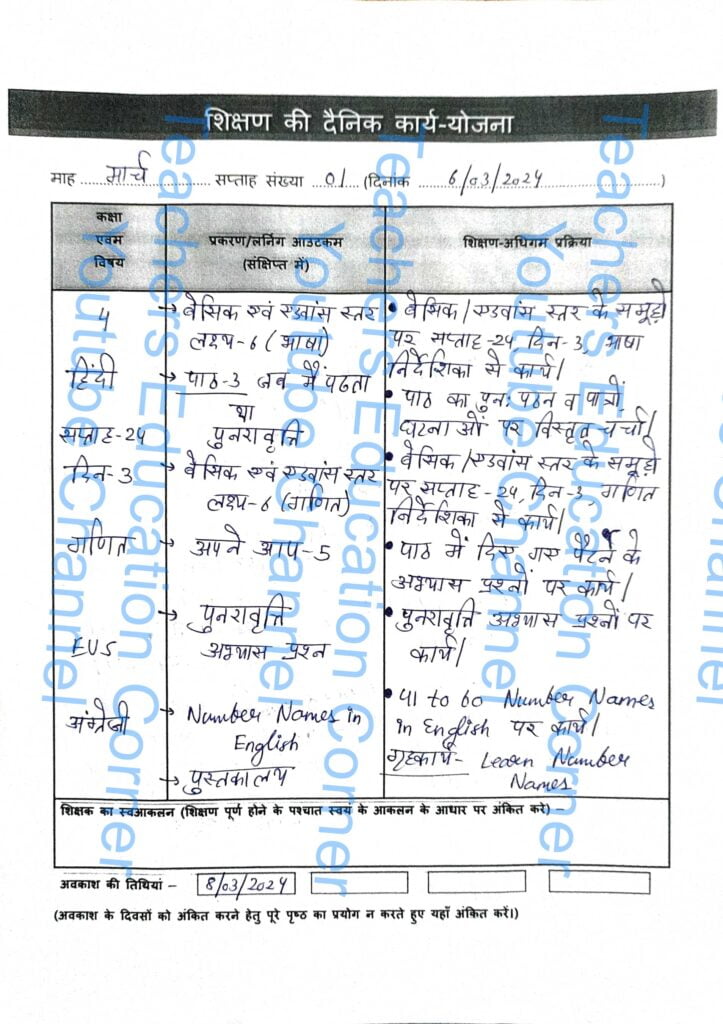 शिक्षण की दैनिक कार्य-योजना
माह मार्च सप्ताह संख्या 01 (दिनांक 6/03/2024)
कक्षा
एवम
विषय
प्रकरण/लर्निंग आउटकम
(संक्षिप्त में)
शिक्षण-अधिगम प्रक्रिया
4
हिंदी
सप्ताह-24
दिन-3
गणित
EVS
अंग्रेजी
→ बेसिक एवं एडवांस स्तर
लक्ष्य-6 (भाषा)
→ पाठ-3 जब मैं पढ़ता
था
पुनरावृत्ति
→ बेसिक एवं एडवांस स्तर
लक्ष्य-6 (गणित)
→ अपने आप-5
→ पुनरावृत्ति
अभ्यास प्रश्न
→ Number Names in
English
→ पुस्तकालय
• बेसिक/एडवांस स्तर के समूहो
पर सप्ताह-24 दिन-3, भाषा
निर्देशिका से कार्य।
• पाठ का पुनः पठन व पात्रों,
घटनाओं पर विस्तृत चर्चा।
• बेसिक/एडवांस स्तर के समूहो
पर सप्ताह-24, दिन-3, गणित
निर्देशिका से कार्य।
• पाठ में दिए गए पैटर्न के
अभ्यास प्रश्नों पर कार्य।
• पुनरावृत्ति अभ्यास प्रश्नों पर
कार्य।
• 41 to 60 Number Names
in English पर कार्य।
गृहकार्य- Learn Number
Names
शिक्षक का स्वआकलन (शिक्षण पूर्ण होने के पश्चात स्वयं के आकलन के आधार पर अंकित करे) –
अवकाश की तिथियां – 8/03/2024
(अवकाश के दिवसों को अंकित करने हेतु पूरे पृष्ठ का प्रयोग न करते हुए यहाँ अंकित करें।)
Teachers Education Corner
Youtube Channel
Teachers Education Corner
Youtube Channel
Teachers Education Corner
Youtube Channel